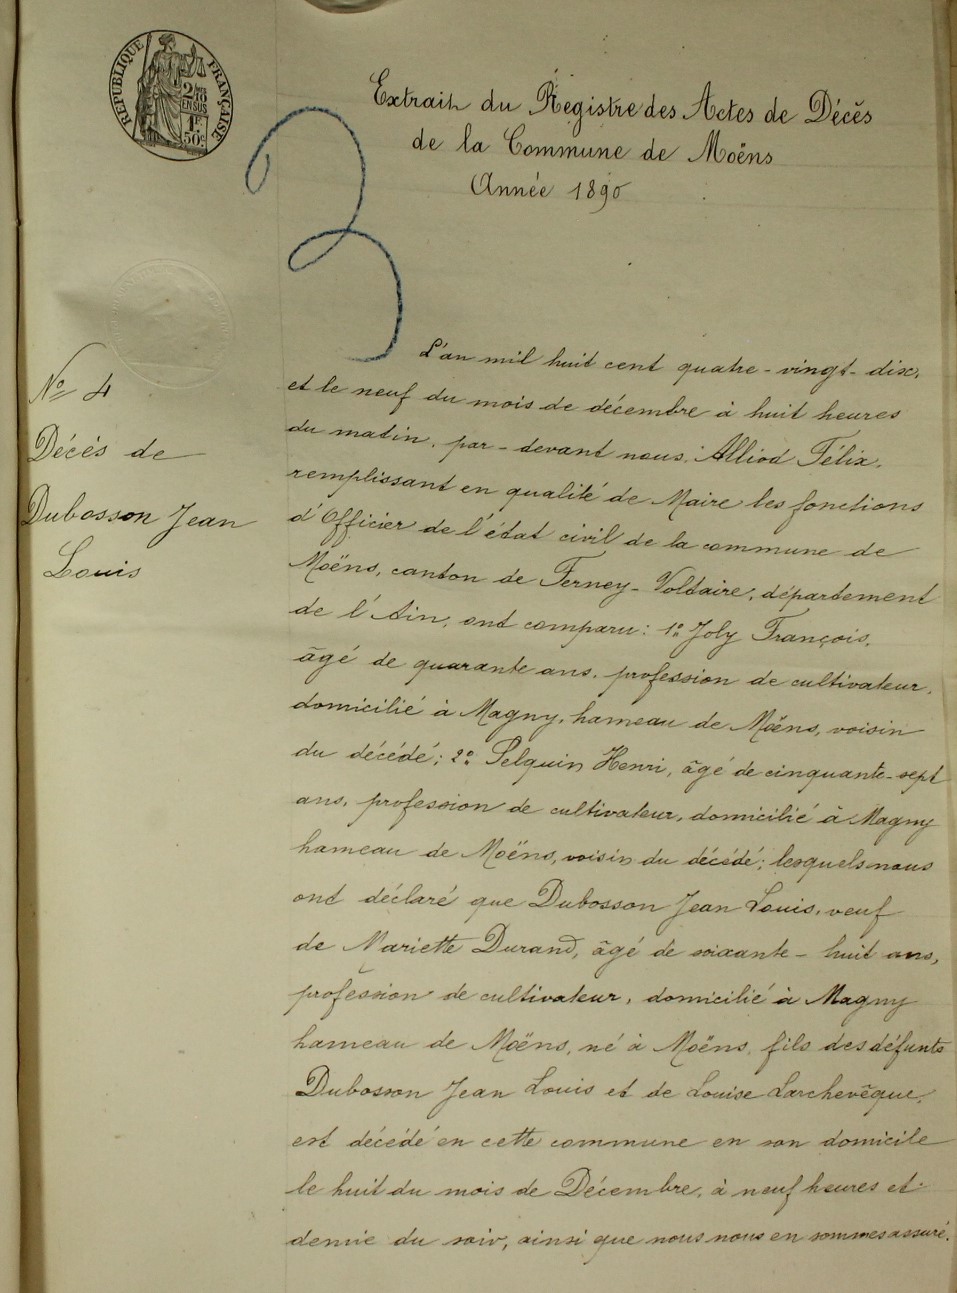 RÉPUBLIQUE FRANÇAISE
2/10 EN SUS
1F 50c
Extrait du Régistre des Actes de Décès
de la Commune de Moëns
Année 1890
3
No 4
Décés de
Dubosson Jean
Louis
L'an mil huit cent quatre-vingt-dix,
et le neuf du mois de décembre à huit heures
du matin, par-devant nous, Alliod Félix,
remplissant en qualité de Maire les fonctions
d'Officier de l'état civil de la commune de
Moëns, canton de Ferney-Voltaire, département
de l'Ain, ont comparu: 1º Joly François,
âgé de quarante ans, profession de cultivateur,
domicilié à Magny, hameau de Moëns, voisin
du décédé; 2º Pelquin Henri, âgé de cinquante-sept
ans, profession de cultivateur, domicilié à Magny
hameau de Moëns, voisin du décédé; lesquels nous
ont déclaré que Dubosson Jean Louis, veuf
de Mariette Durand, âgé de soixante-huit ans,
profession de cultivateur, domicilié à Magny
hameau de Moëns, né à Moëns, fils des défunts
Dubosson Jean Louis et de Louise Larchevêque,
est décédé en cette commune en son domicile
le huit du mois de Décembre, à neuf heures et
demie du soir, ainsi que nous nous en sommes assuré.